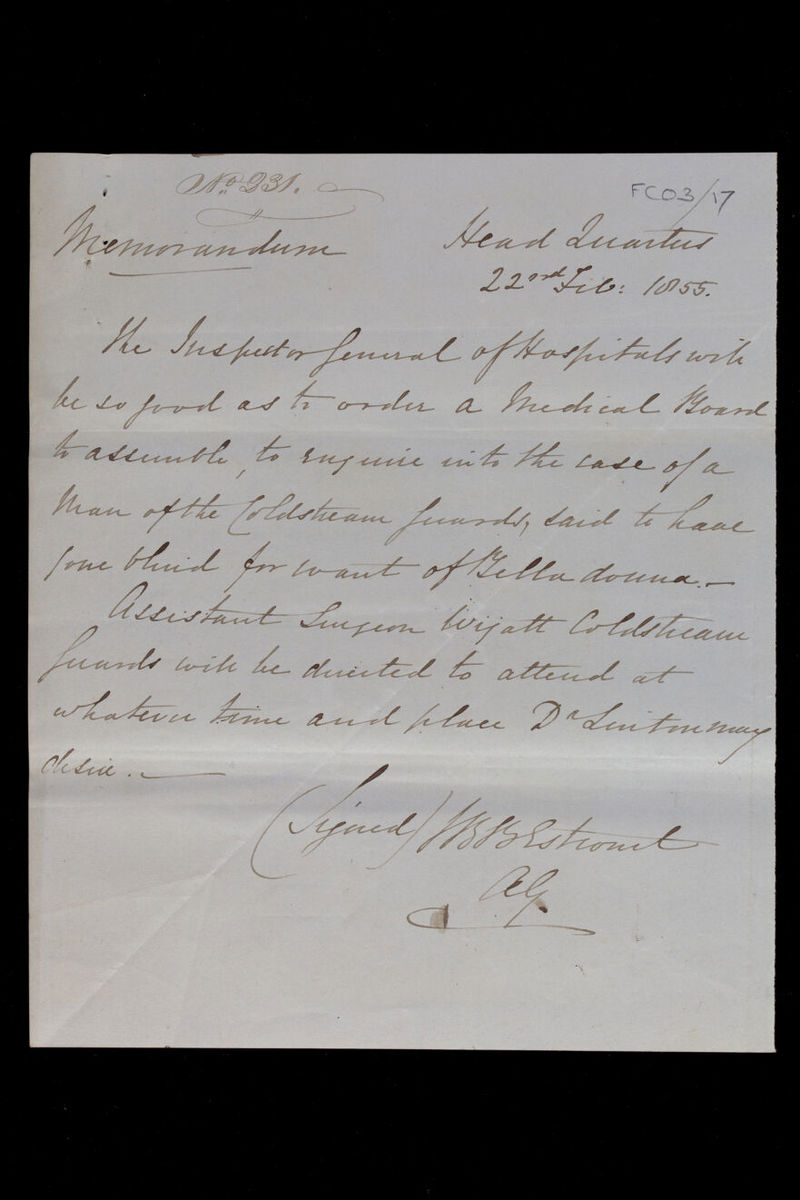 No. 231.
FC03/17
Memorandum
Head Quarters
22nd Feb: 1855.
The Inspector General of Hospitals will
be so good as to order a Medical Board
to assemble, to enquire into the case of a
Man of the Coldstream Guards, said to have
gone blind for want of Bella donna.—
Assistant Surgeon Wyatt Coldstream
Guards will be directed to attend at
whatever time and place Dr Linton may
desire.—
(Signed) JBB Estcourt
AG